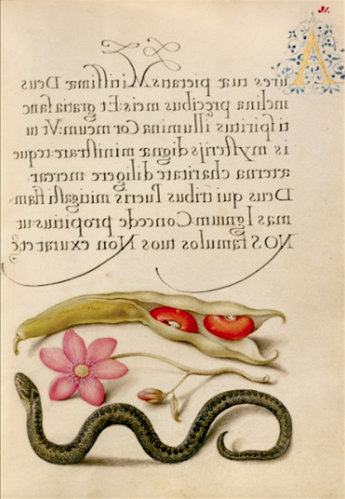 31.
Aures tuæ pietatis Mitissime Deus
inclina precibus meis: Et gratia sanc
ti spiritus illumina Cor meum: Vt tu
is mysterijs digne ministrare: teque
æterna charitate diligere merear.
Deus qui tribus Pueris mitigasti flam
mas Ignium: Concede propitius: ut
NOS famulos tuos Non exurat etc